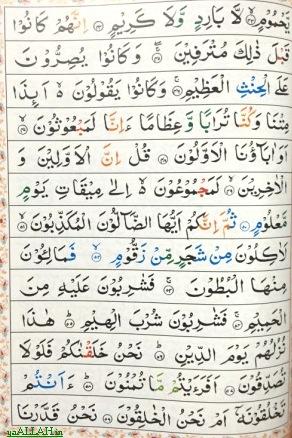 يَّحْمُوْمٍۙ﴿۴۳﴾ لَّا بَارِدٍ وَّلَا كَرِيْمٍ﴿۴۴﴾ اِنَّهُمْ كَانُوْا
قَبْلَ ذٰلِكَ مُتْرَفِيْنَۚۖ﴿۴۵﴾ وَكَانُوْا يُصِرُّوْنَ
عَلَى الْحِنْثِ الْعَظِيْمِۚ﴿۴۶﴾ وَكَانُوْا يَقُوْلُوْنَ ۙ۬ اَىِٕذَا
مِتْنَا وَكُنَّا تُرَابًا وَّعِظَامًا ءَاِنَّا لَمَبْعُوْثُوْنَۙ﴿۴۷﴾
اَوَاٰبَآؤُنَا الْاَوَّلُوْنَ﴿۴۸﴾ قُلْ اِنَّ الْاَوَّلِيْنَ وَ
الْاٰخِرِيْنَۙ﴿۴۹﴾ لَمَجْمُوْعُوْنَ ۙ۬ اِلٰى مِيْقَاتِ يَوْمٍ
مَّعْلُوْمٍ﴿۵۰﴾ ثُمَّ اِنَّكُمْ اَيُّهَا الضَّآلُّوْنَ الْمُكَذِّبُوْنَۙ﴿۵۱﴾
لَاٰكِلُوْنَ مِنْ شَجَرٍ مِّنْ زَقُّوْمٍۙ﴿۵۲﴾ فَمَالِـُٔوْنَ
مِنْهَا الْبُطُوْنَۚ﴿۵۳﴾ فَشٰرِبُوْنَ عَلَيْهِ مِنَ
الْحَمِيْمِۚ﴿۵۴﴾ فَشٰرِبُوْنَ شُرْبَ الْهِيْمِؕ﴿۵۵﴾ هٰذَا
نُزُلُهُمْ يَوْمَ الدِّيْنِؕ﴿۵۶﴾ نَحْنُ خَلَقْنٰكُمْ فَلَوْلَا
تُصَدِّقُوْنَ﴿۵۷﴾ اَفَرَءَيْتُمْ مَّا تُمْنُوْنَؕ﴿۵۸﴾ ءَاَنْتُمْ
تَخْلُقُوْنَهٗۤ اَمْ نَحْنُ الْخٰلِقُوْنَ﴿۵۹﴾ نَحْنُ قَدَّرْنَا
yaALLAH.in